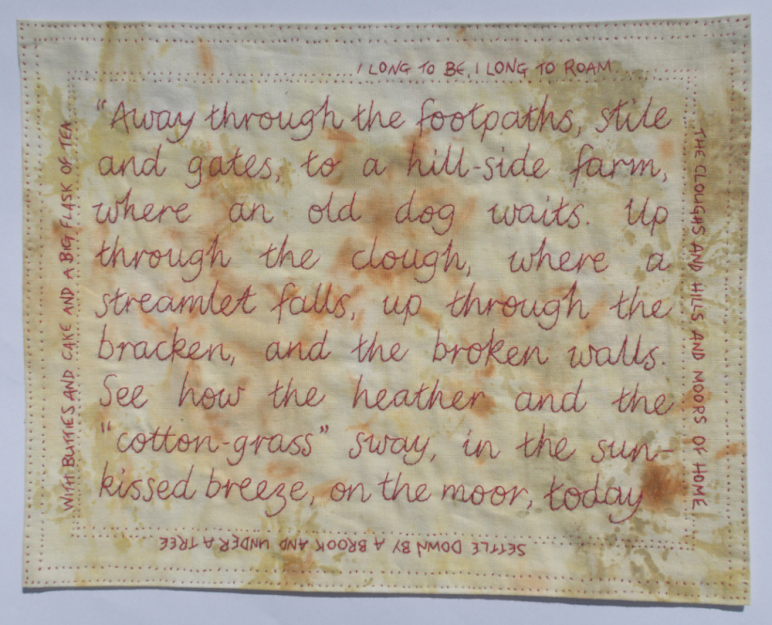 I LONG TO BE, I LONG TO ROAM
THE CLOUGHS AND HILLS AND MOORS OF HOME
SETTLE DOWN BY A BROOK AND UNDER A TREE
WITH BUTTIES AND CAKE AND A BIG FLASK OF TEA
"Away through the footpaths, stile
and gates, to a hill-side farm,
where an old dog waits. Up
through the clough, where a
streamlet falls, up through the
bracken, and the broken walls.
See how the heather and the
"cotton-grass" sway, in the sun-
kissed breeze, on the moor, today